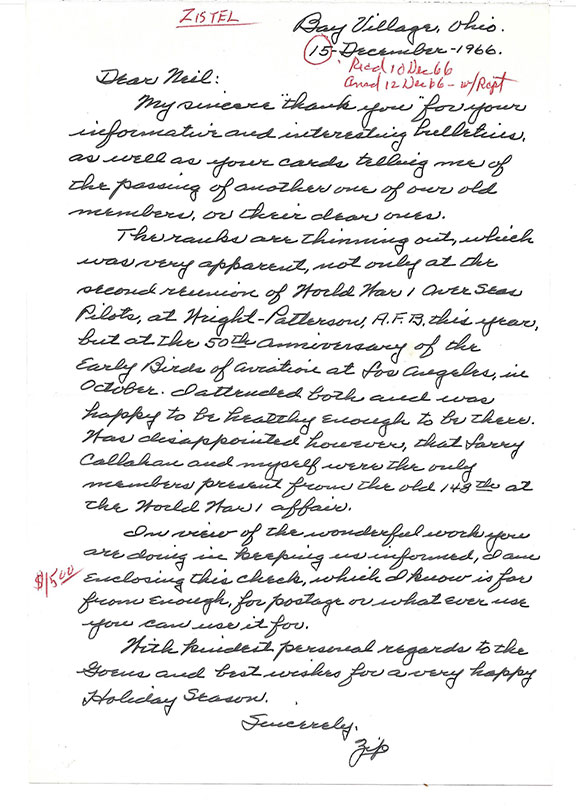 ZISTEL
Bay Village, Ohio.
15-December-1966.
Recd 10 Dec 66
Ansd 12 Dec 66 - w/Rept
Dear Neil:
My sincere "thank you" for your
informative and interesting bulletins,
as well as your cards telling me of
the passing of another one of our old
members, or their dear ones.
The ranks are thinning out, which
was very apparent, not only at the
second reunion of World War 1 Over Seas
Pilots, at Wright-Patterson, A.F.B, this year,
but at the 50th anniversary of the
Early Birds of Aviation at Los Angeles, in
October. I attended both and was
happy to be healthy enough to be there.
Was disappointed however, that Larry
Callahan and myself were the only
members present from the old 148th at
the World War 1 affair.
In view of the wonderful work you
are doing in keeping us informed, I am
$15.00
enclosing this check, which I know is far
from enough, for postage or what ever use
you can use it for.
With kindest personal regards to the
Goens and best wishes for a very happy
Holiday Season.
Sincerely,
Zip